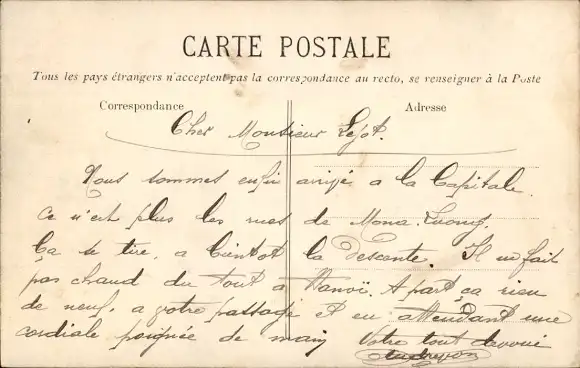 CARTE POSTALE
Tous les pays étrangers n'acceptent pas la correspondance au recto, se renseigner à la Poste
Correspondance
Adresse
Cher Monsieur Lejot.
Nous sommes enfin arrivé a la Capitale.
Ce n'est plus les rues de Mona-Luong.
Ça se tire, a bientot la descente. Il ne fait
pas chaud du tout à Hanoï. A part ça rien
de neuf. a votre passage et en attendant une
cordiale poignée de main Votre tout devoué